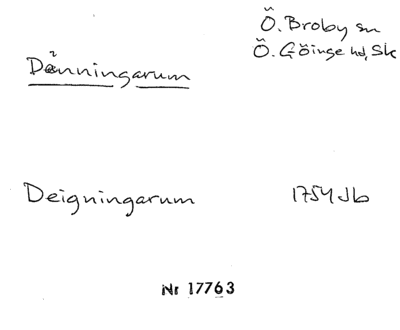 Ö. Broby sn
Ö. Göinge hd, Sk
Dänningarum
Deigningarum 1754 Jb
Nr 17763